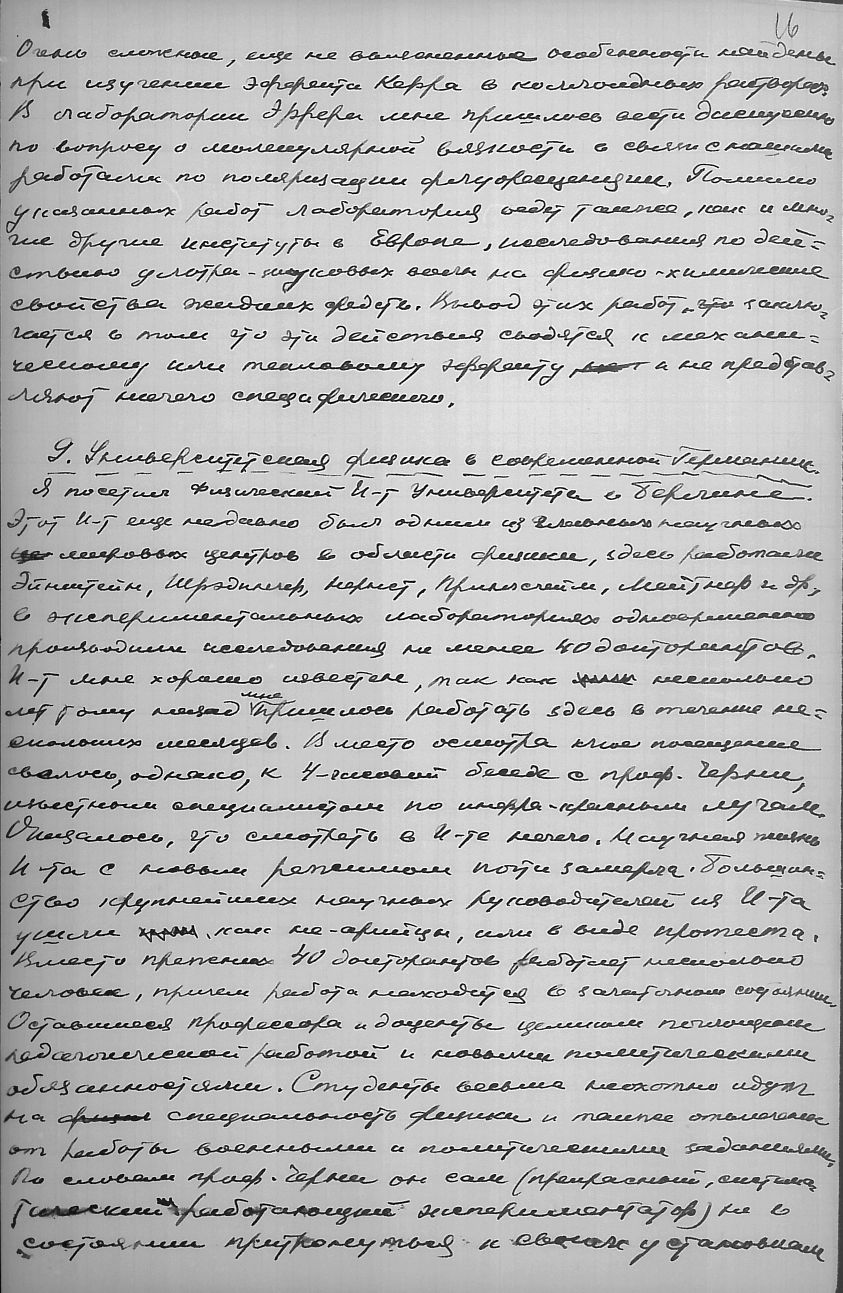 16
Очень сложные, еще не выясненные особенности найдены
при изучении эффекта Керра в коллоидных растворах.
В лаборатории Эррера мне пришлось вести дискуссию
по вопросу о молекулярной вязкости в связи с нашими
работами по поляризации флуоресценции. Помимо
указанных работ лаборатория ведет также, как и мно-
гие другие институты в Европе, исследования по дей-
ствию ультра-звуковых волн на физико-химические
свойства жидких средств. Вывод этих работ, что заклю-
чается в том что эти действия сводятся к механи-
ческому или тепловому эффекту и не представ-
ляют ничего специфического.
9. Университетская физика в современной Германии.
Я посетил Физический И-т Университета в Берлине.
Этот И-т еще недавно был одним из главных научных
мировых центров в области физики, здесь работали
Эйнштейн, Шрэдингер, Нернст, Принсгейм, Мейтнер и др.,
в экспериментальных лабораториях одновременно
производили исследования не менее 40 докторантов.
И-т мне хорошо известен, так как несколько
лет тому назад мне пришлось работать здесь в течение не-
скольких месяцев. Вместо осмотра мое посещение
свелось, однако, к 4-часовой беседе с проф. Черни,
известным специалистом по инфра-красным лучам.
Оказалось, что смотреть в И-те нечего. Научная жизнь
И-та с новым режимом почти замерла. Большин-
ство крупнейших научных руководителей из И-та
ушли как не-арийцы, или в виде протеста.
Вместо прежних 40 докторантов работает несколько
человек, причем работа находится в зачаточном состоянии.
Оставшиеся профессора и доценты целиком поглощены
педагогической работой и новыми политическими
обязанностями. Студенты весьма неохотно идут
на специальность физики и также отвлечены
от работы военными и политическими заданиями.
По словам проф. Черни он сам (прекрасный, система-
тически работающий экспериментатор) не в
состоянии притронуться к своим установкам